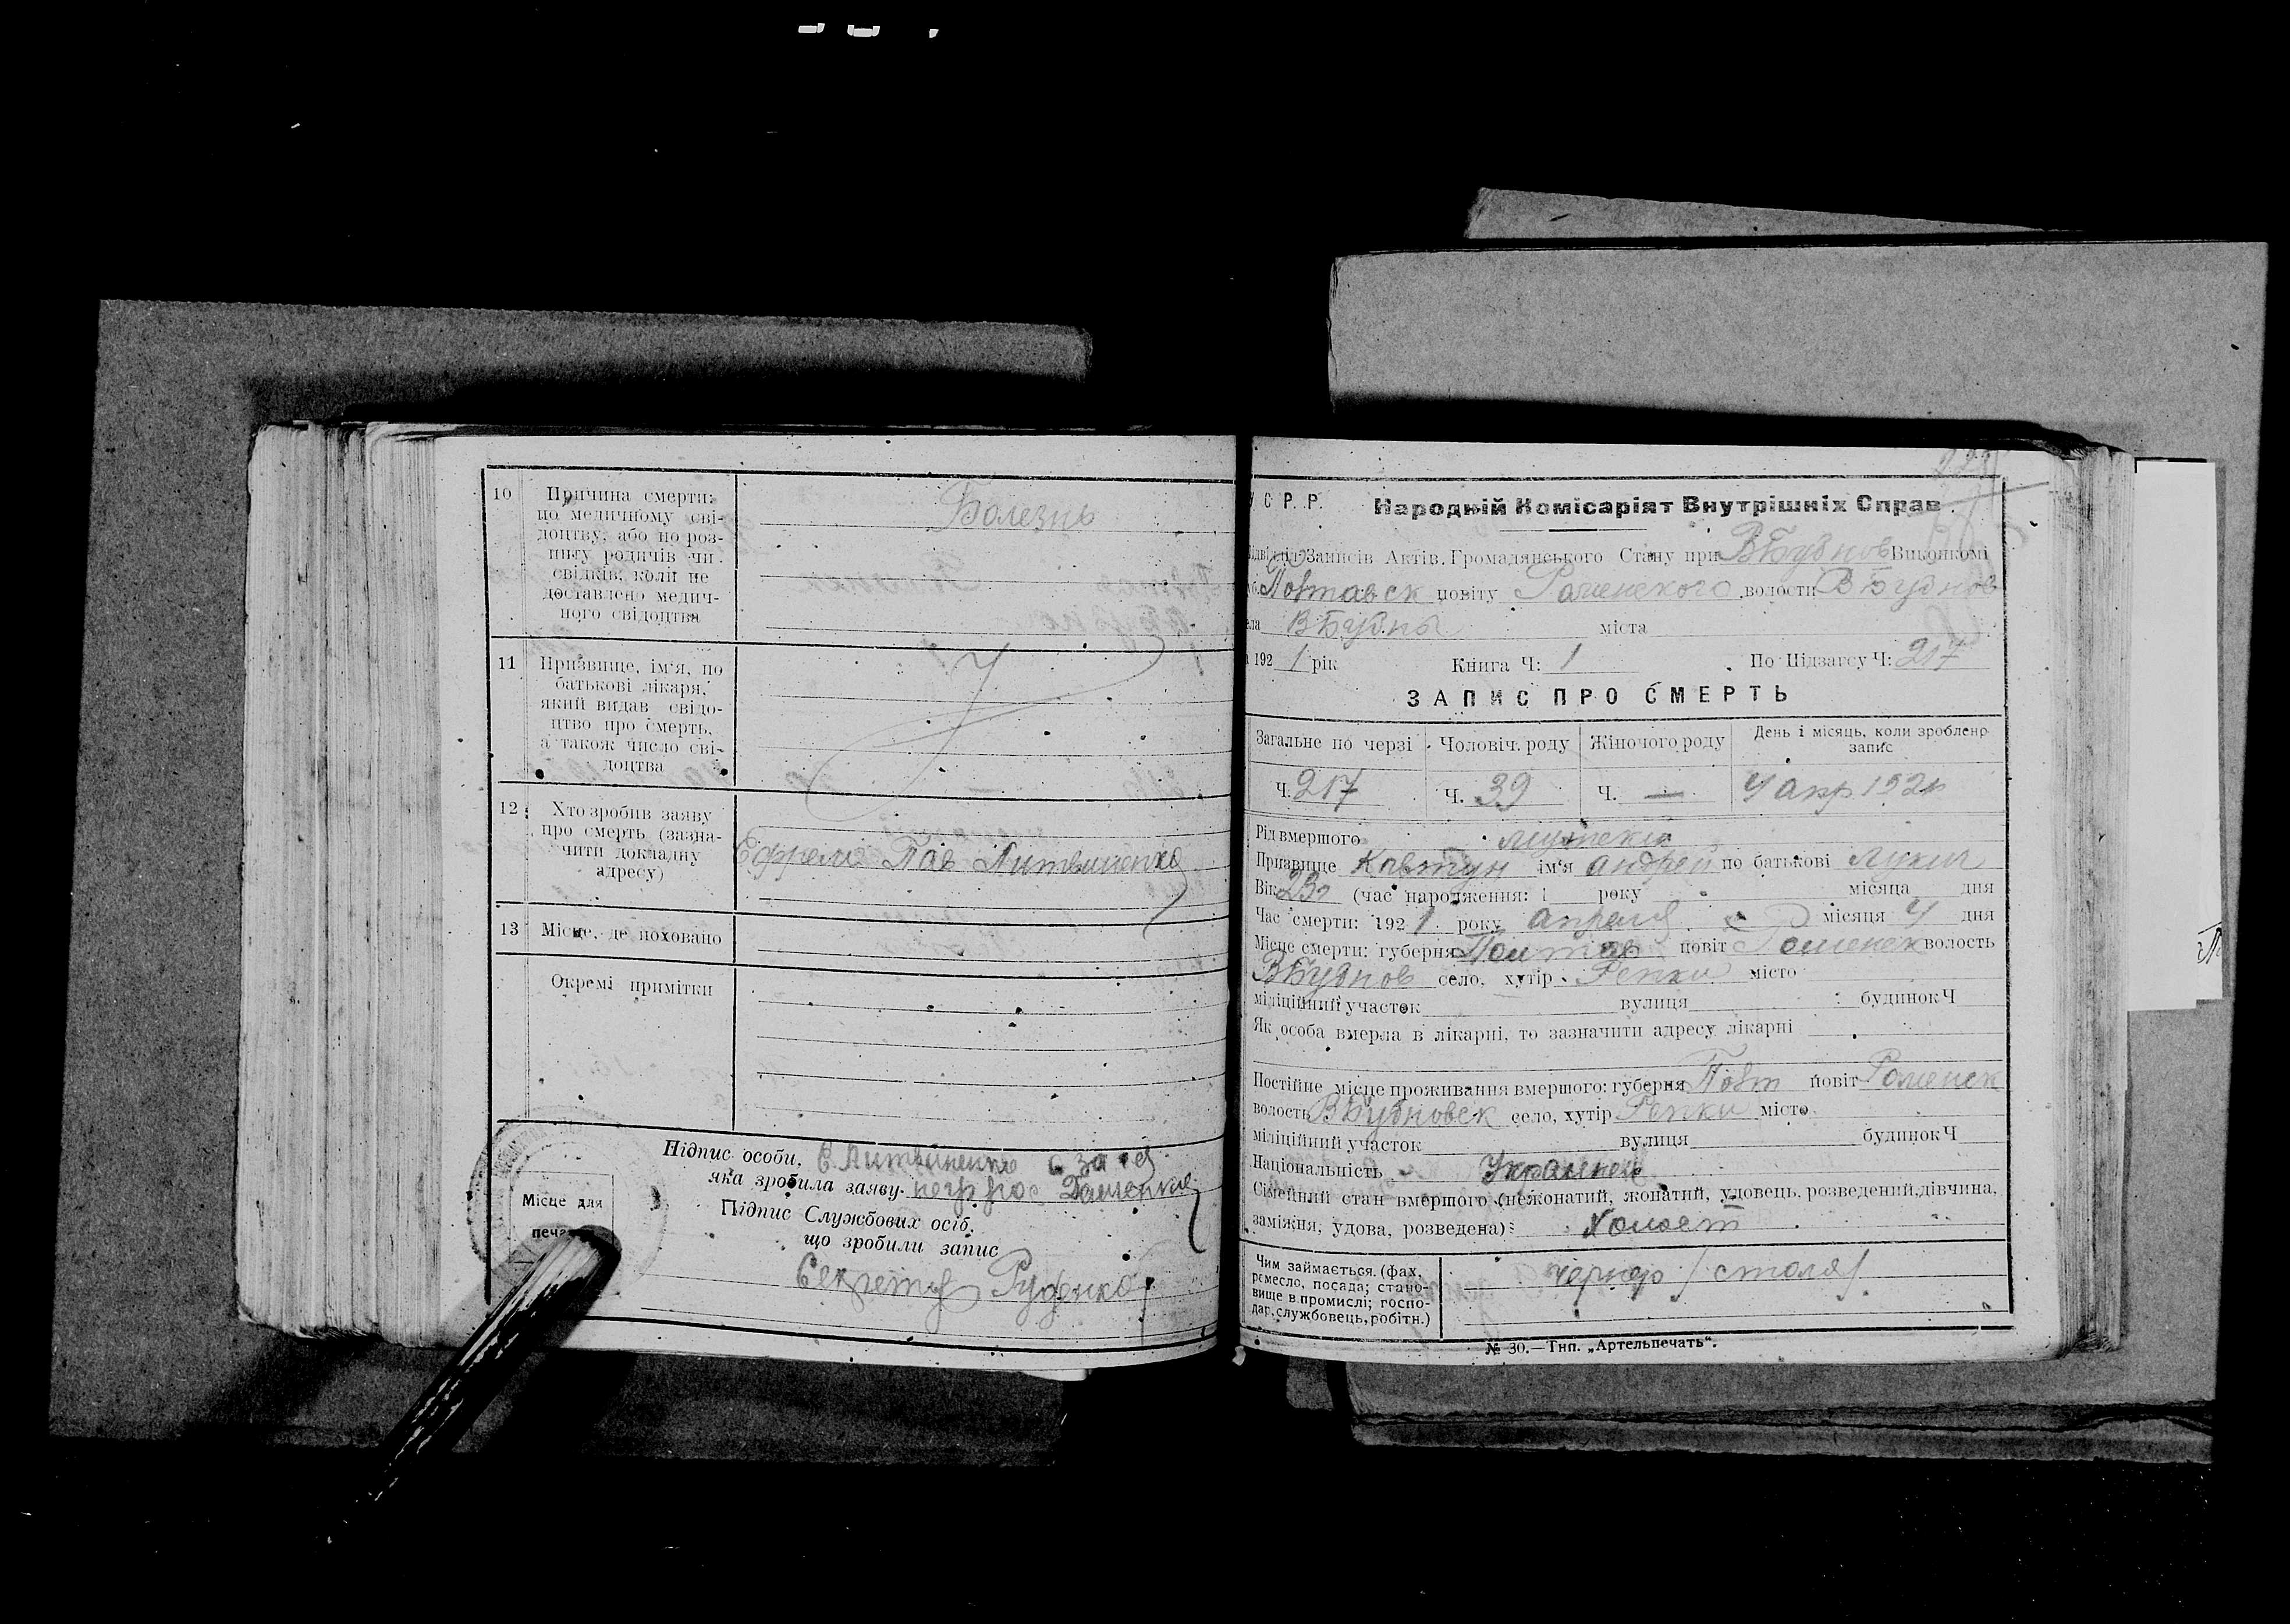 10 Причина смерти:
по медичному сві-
доцтву, або по роз-
питу родичів чи
свідків, коли не
доставлено медич-
ного свідоцтва
Болезнь
11 Призвище, ім'я, по
батькові лікаря,
який видав свідо-
цтво про смерть,
а також число сві-
доцтва
12 Хто зробив заяву
про смерть (зазна-
чити докладну
адресу)
Ефрем Пав Литвиненко
13 Місце, де поховано
Окремі примітки
Підпис особи, Е. Литвиненко
яка зробила заяву
Підпис Службових осіб,
що зробили запис
Секретарь Руденко
Місце для
У С Р. Р. Народній Комісаріят Внутрішніх Справ.
Записів Актів Громадянського Стану при ВБубнов Виконкомі
Полтавск повіту Роменского волости ВБубнов
ВБубны міста
192 1 рік Книга Ч: 1 По Підзагсу Ч: 217
ЗАПИС ПРО СМЕРТЬ
Загальне по черзі Чоловіч. роду Жіночого роду День і місяць, коли зроблено
запис
Ч. 217 Ч. 39 Ч. — 4 апр 1921
Рід вмершого мужской
Призвище Ковтун ім'я Андрей по батькові Лукич
Вік 23 (час народження: 1 року місяца дня
Час смерти: 192 1 року апреля місяця 4 дня
Місце смерти: губерня Полтав повіт Роменск волость
ВБубнов село, хутір Репки місто
міліційний участок вулиця будинок Ч
Як особа вмерла в лікарні, то зазначити адресу лікарні
Постійне місце проживання вмершого: губерня Полт повіт Роменск
волость ВБубновск село, хутір Репки місто
міліційний участок вулиця будинок Ч
Національність Украинец
Сімейний стан вмершого (нежонатий, жонатий, удовець, розведений, дівчина,
заміжня, удова, розведена): Холост
Чим займається (фах,
ремесло, посада; стано-
вище в промислі; госпо-
дар, службовець, робітн.)
№ 30.—Тип. „Артельпечать“.